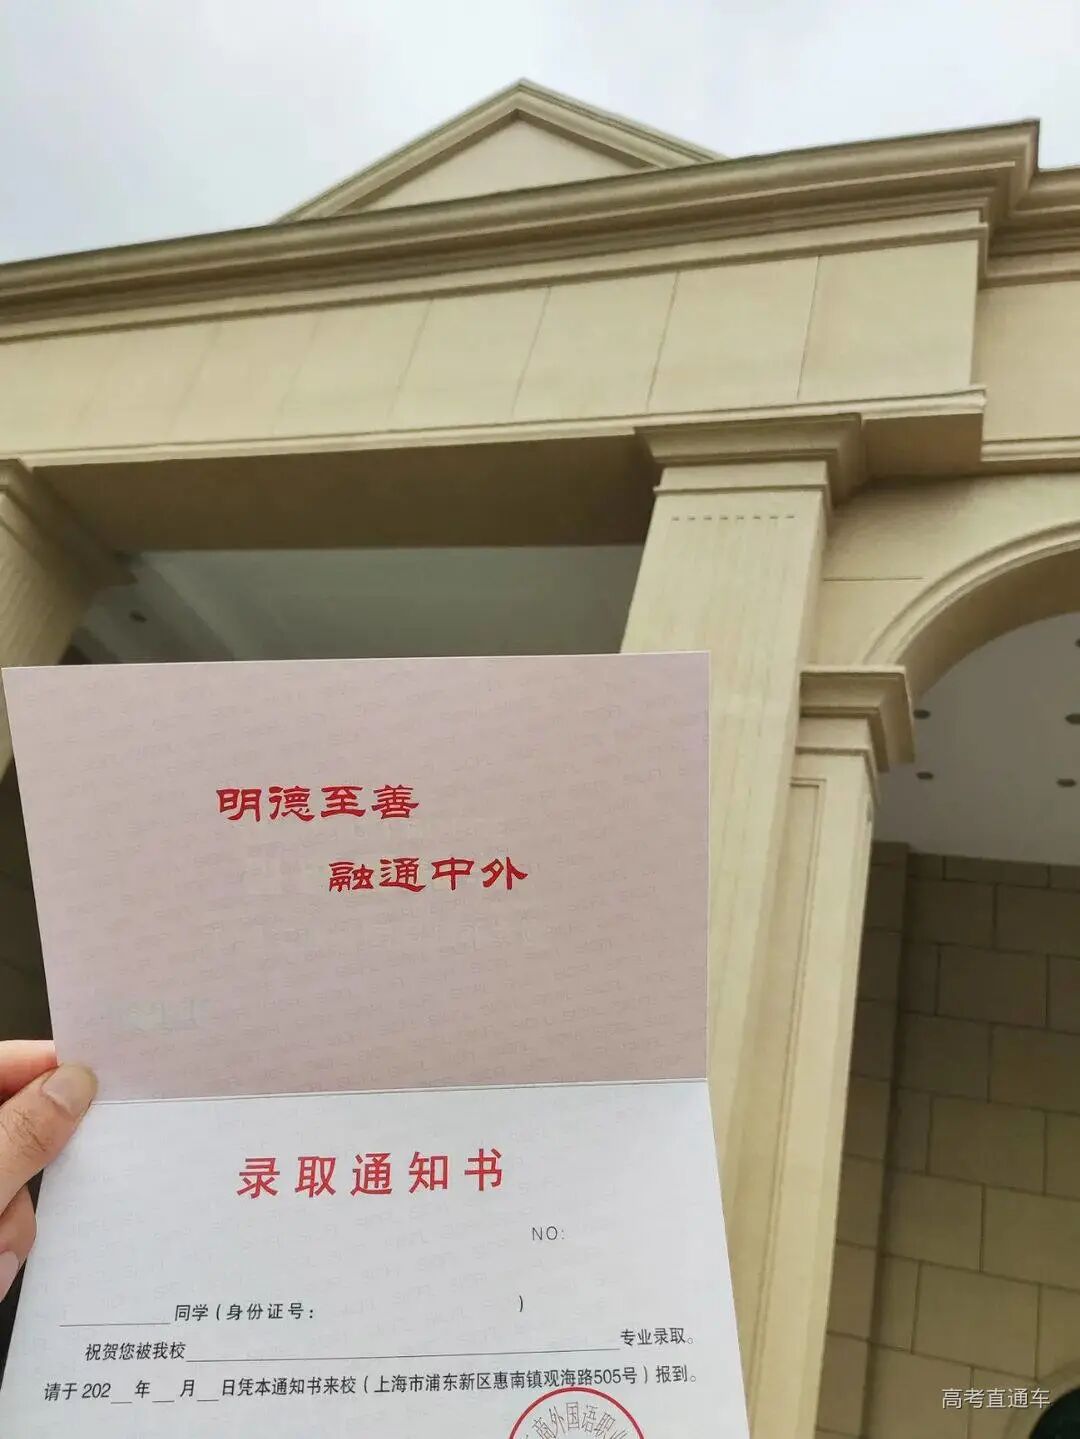 明德至善
融通中外
录取通知书
NO:
同学(身份证号: )
祝贺您被我校 专业录取。
请于202__年__月__日凭本通知书来校(上海市浦东新区惠南镇观海路505号)报到。
外国语职业
高考直通车